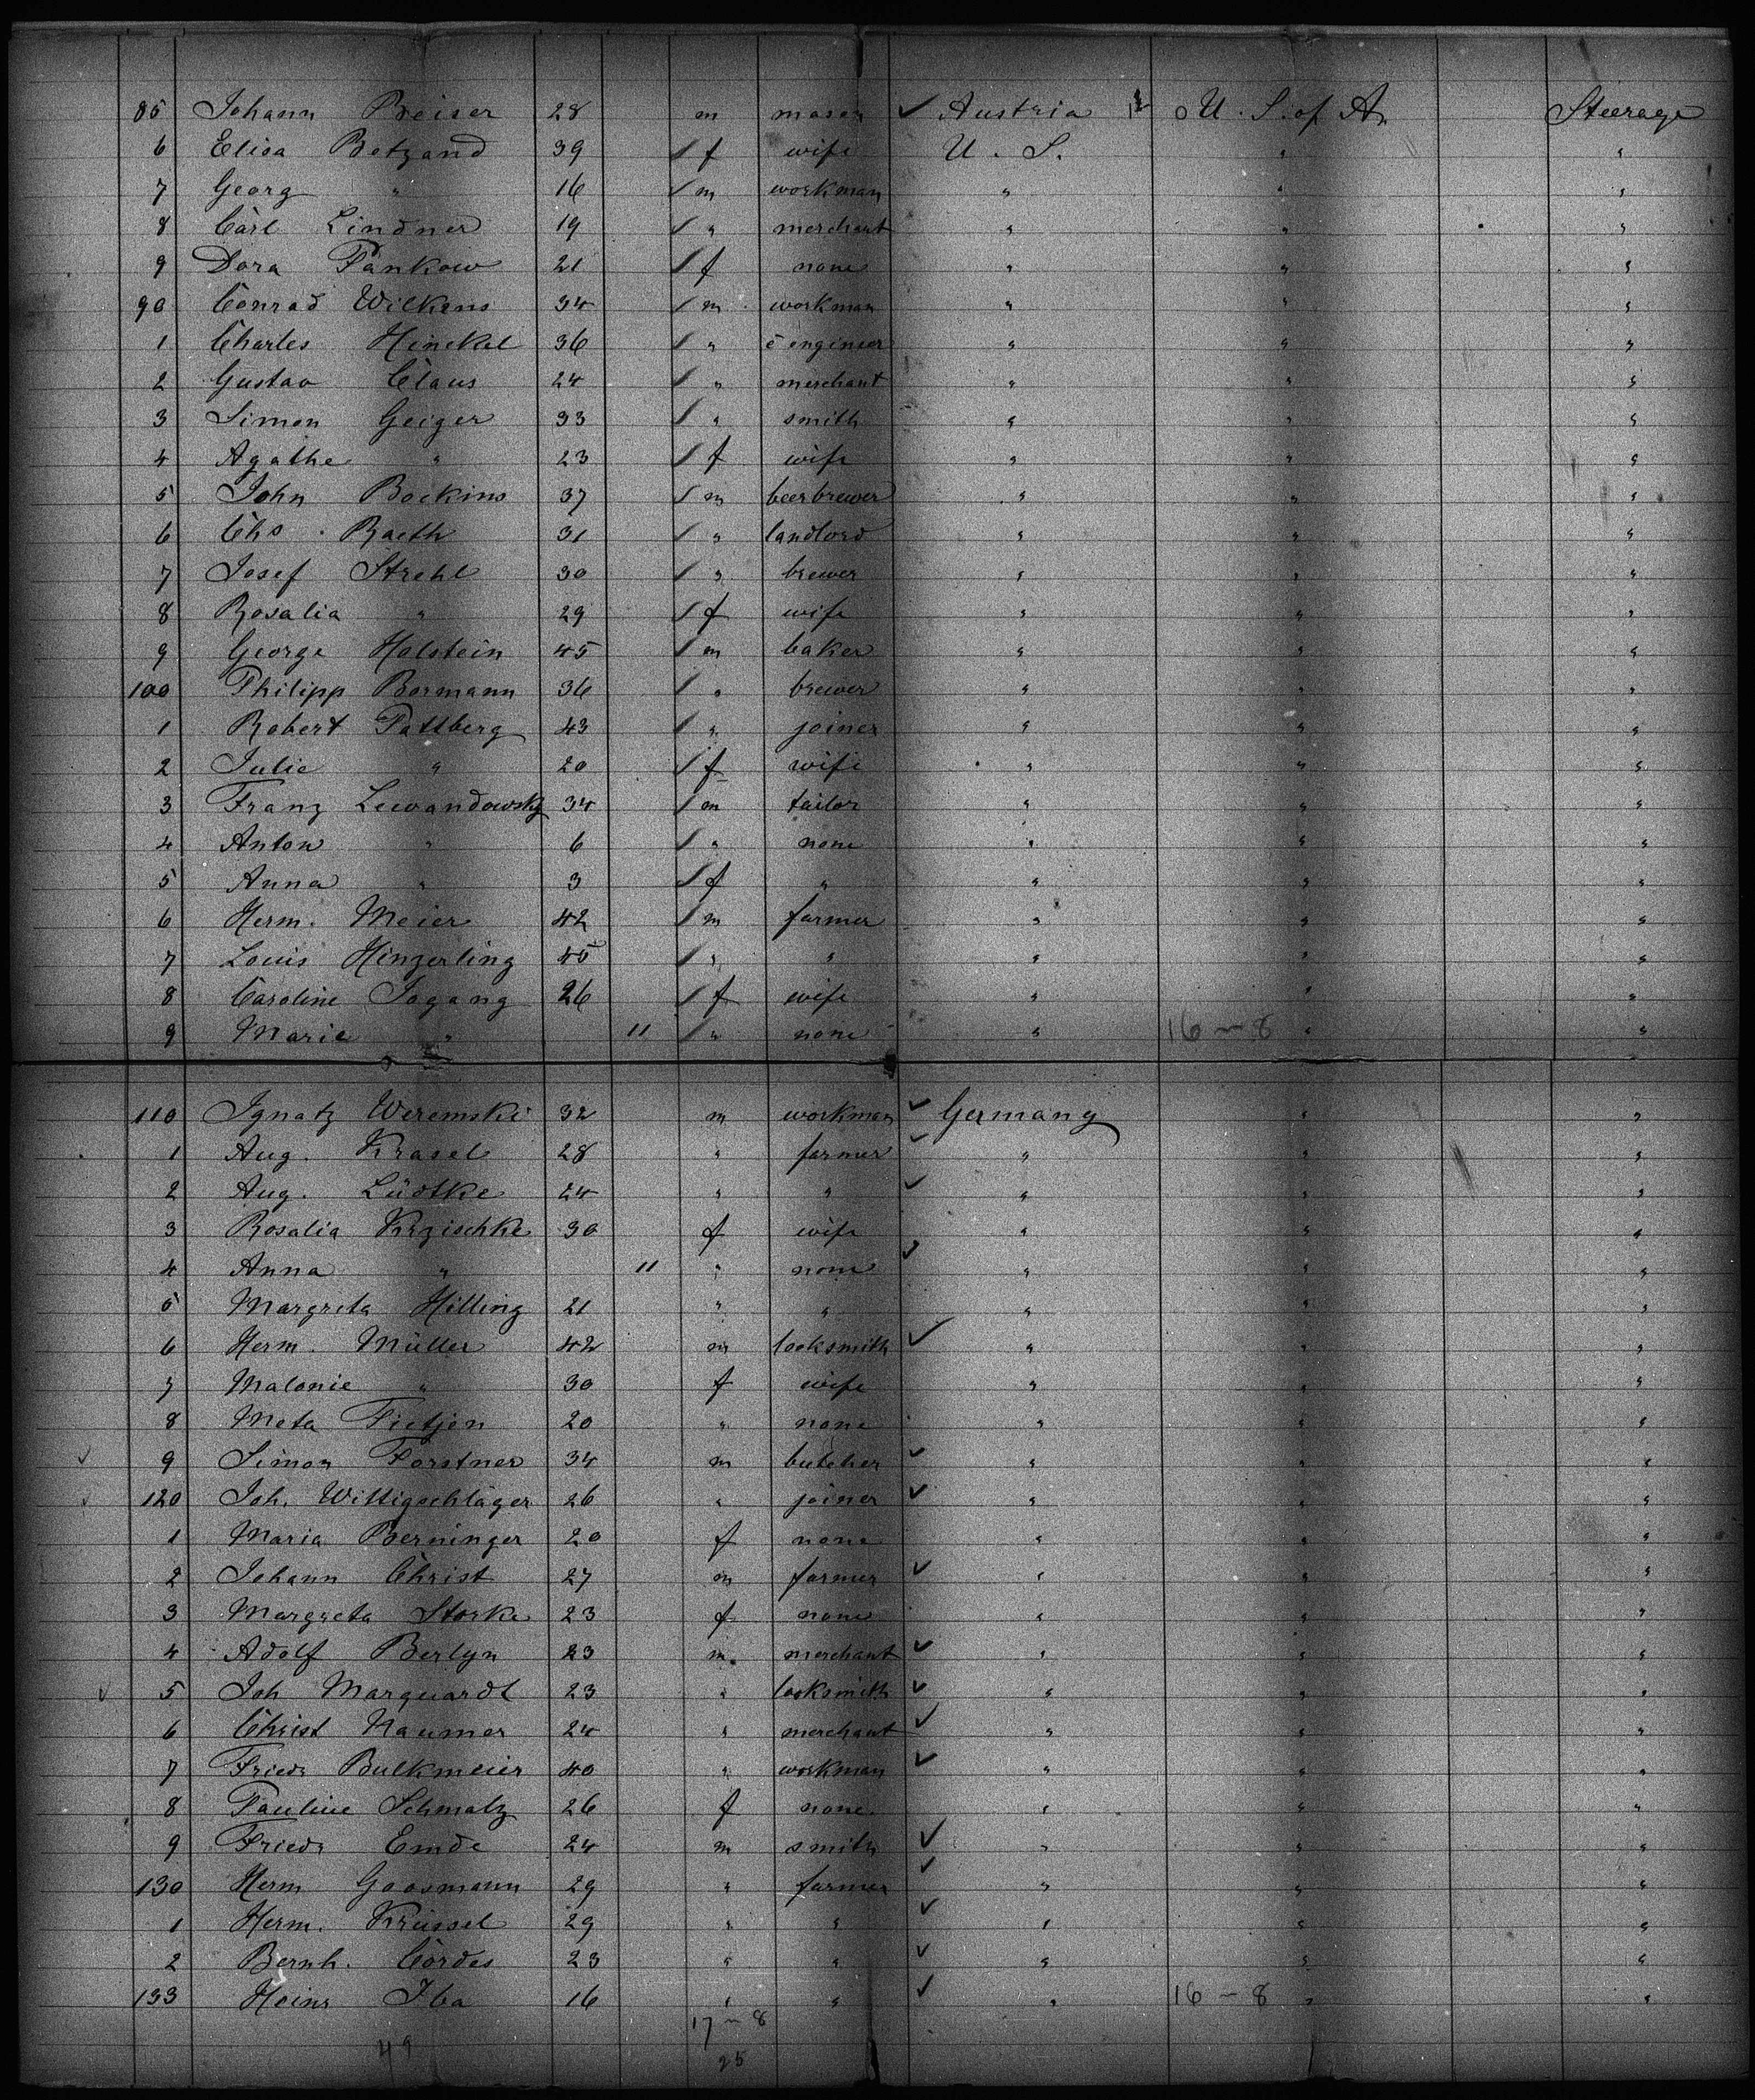 85 Johann Beiser 28 m mason ✓ Austria o U. S. of A. Steerage
6 Elisa Betzand 39 / f wife U. S. " "
7 Georg " 16 / m workman " " "
8 Carl Lindner 19 / " merchant " " "
9 Dora Pankow 21 / f none " " "
90 Conrad Wilkens 34 / m workman " " "
1 Charles Hinckel 36 / " c engineer " " "
2 Gustav Claus 24 / " merchant " " "
3 Simon Geiger 33 / " smith " " "
4 Agathe " 23 / f wife " " "
5 John Bockins 37 / m beerbrewer " " "
6 Chs. Raeth 31 / " landlord " " "
7 Josef Strehl 30 / " brewer " " "
8 Rosalia " 29 / f wife " " "
9 George Holstein 45 / m baker " " "
100 Philipp Bormann 36 / " brewer " " "
1 Robert Pattberg 43 / " joiner " " "
2 Julie " 20 / f wife " " "
3 Franz Lewandowsky 34 / m tailor " " "
4 Anton " 6 / " none " " "
5 Anna " 3 / f " " " "
6 Herm. Meier 42 / m farmer " " "
7 Louis Hingerling 45 / " " " " "
8 Caroline Jogang 26 / f wife " " "
9 Marie " 11 / " none " 16 - 8 " "
110 Ignatz Weremski 32 m workman ✓ Germany " "
1 Aug. Krasel 28 " farmer ✓ " " "
2 Aug. Lüdtke 24 " " ✓ " " "
3 Rosalia Krzischke 30 f wife " " "
4 Anna " 11 " none ✓ " " "
5 Margreta Hilling 21 " " " " "
6 Herm. Müller 42 m locksmith ✓ " " "
7 Malonie " 30 f wife " " "
8 Meta Fietjen 20 " none " " "
✓ 9 Simon Forstner 34 m butcher ✓ " " "
✓ 120 Joh. Wittigschläger 26 " joiner ✓ " " "
1 Maria Berninger 20 f none " " "
2 Johann Christ 27 m farmer ✓ " " "
3 Margreta Storke 23 f none " " "
4 Adolf Berlyn 23 m. merchant ✓ " " "
✓ 5 Joh Marquardt 23 " locksmith ✓ " " "
6 Christ Naumer 24 " merchant ✓ " " "
7 Friedr Bulkmeier 40 " workman ✓ " " "
8 Pauline Schmalz 26 f none " " "
9 Friedr Emde 24 m smith ✓ " " "
130 Herm Goosmann 29 " farmer ✓ " " "
1 Herm. Krüssel 29 " " ✓ " " "
2 Bernh. Cordes 23 " " ✓ " " "
133 Heinr Iba 16 " " ✓ " 16 - 8 " "
17 - 8
49 25